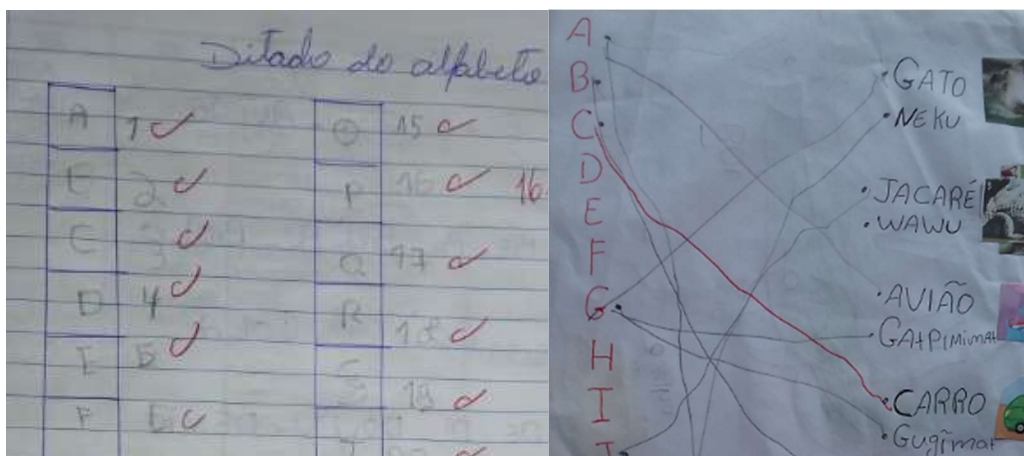 Ditado do alfabeto
A 1
E 2
C 3
D 4
E 5
F 6
O 15
P 16 16
Q 17
R 18
S 19
A
B
C
D
E
F
G
H
I
J
GATO
NEKU
JACARÉ
WAWU
AVIÃO
GAtPiMiMAt
CARRO
Gugĩmat